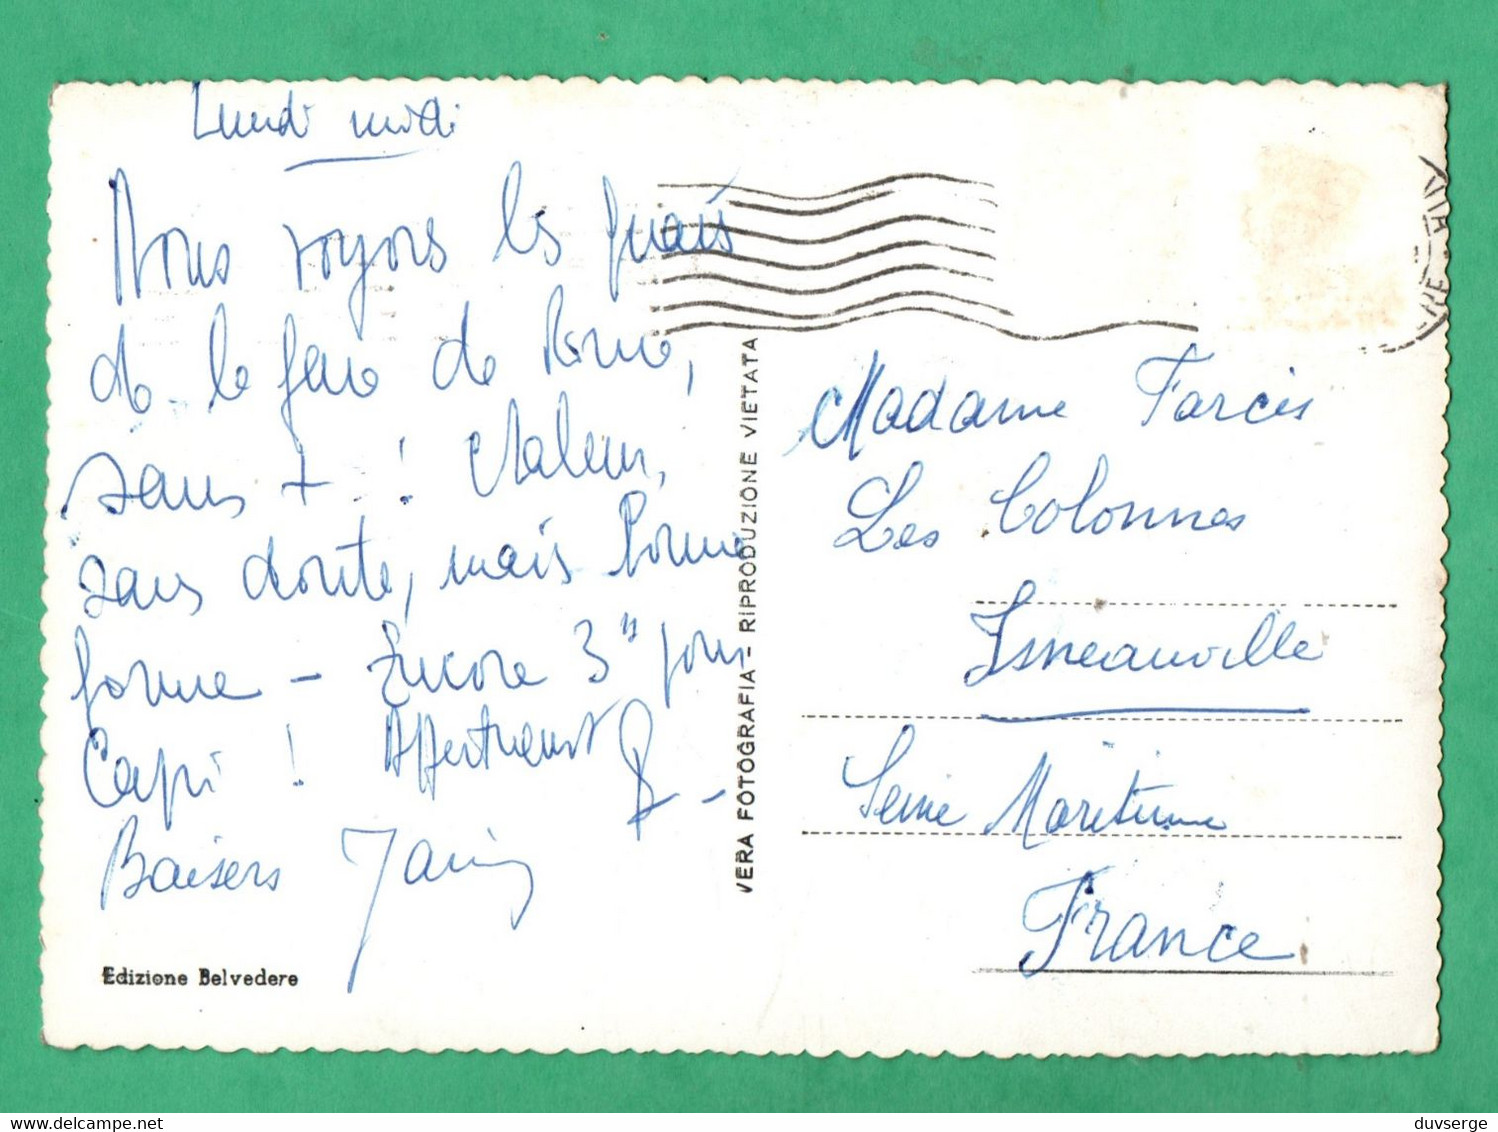 Lundi midi
Nous voyons les quais
de la gare de Rome,
sans + ! Chaleur,
sans doute, mais bonne
forme - Encore 3 jours
Capri ! Affectueust
Baisers
Edizione Belvedere
VERA FOTOGRAFIA - RIPRODUZIONE VIETATA
Madame Farcis
Les Colonnes
Isneauville
Seine Maritime
France
duvserge